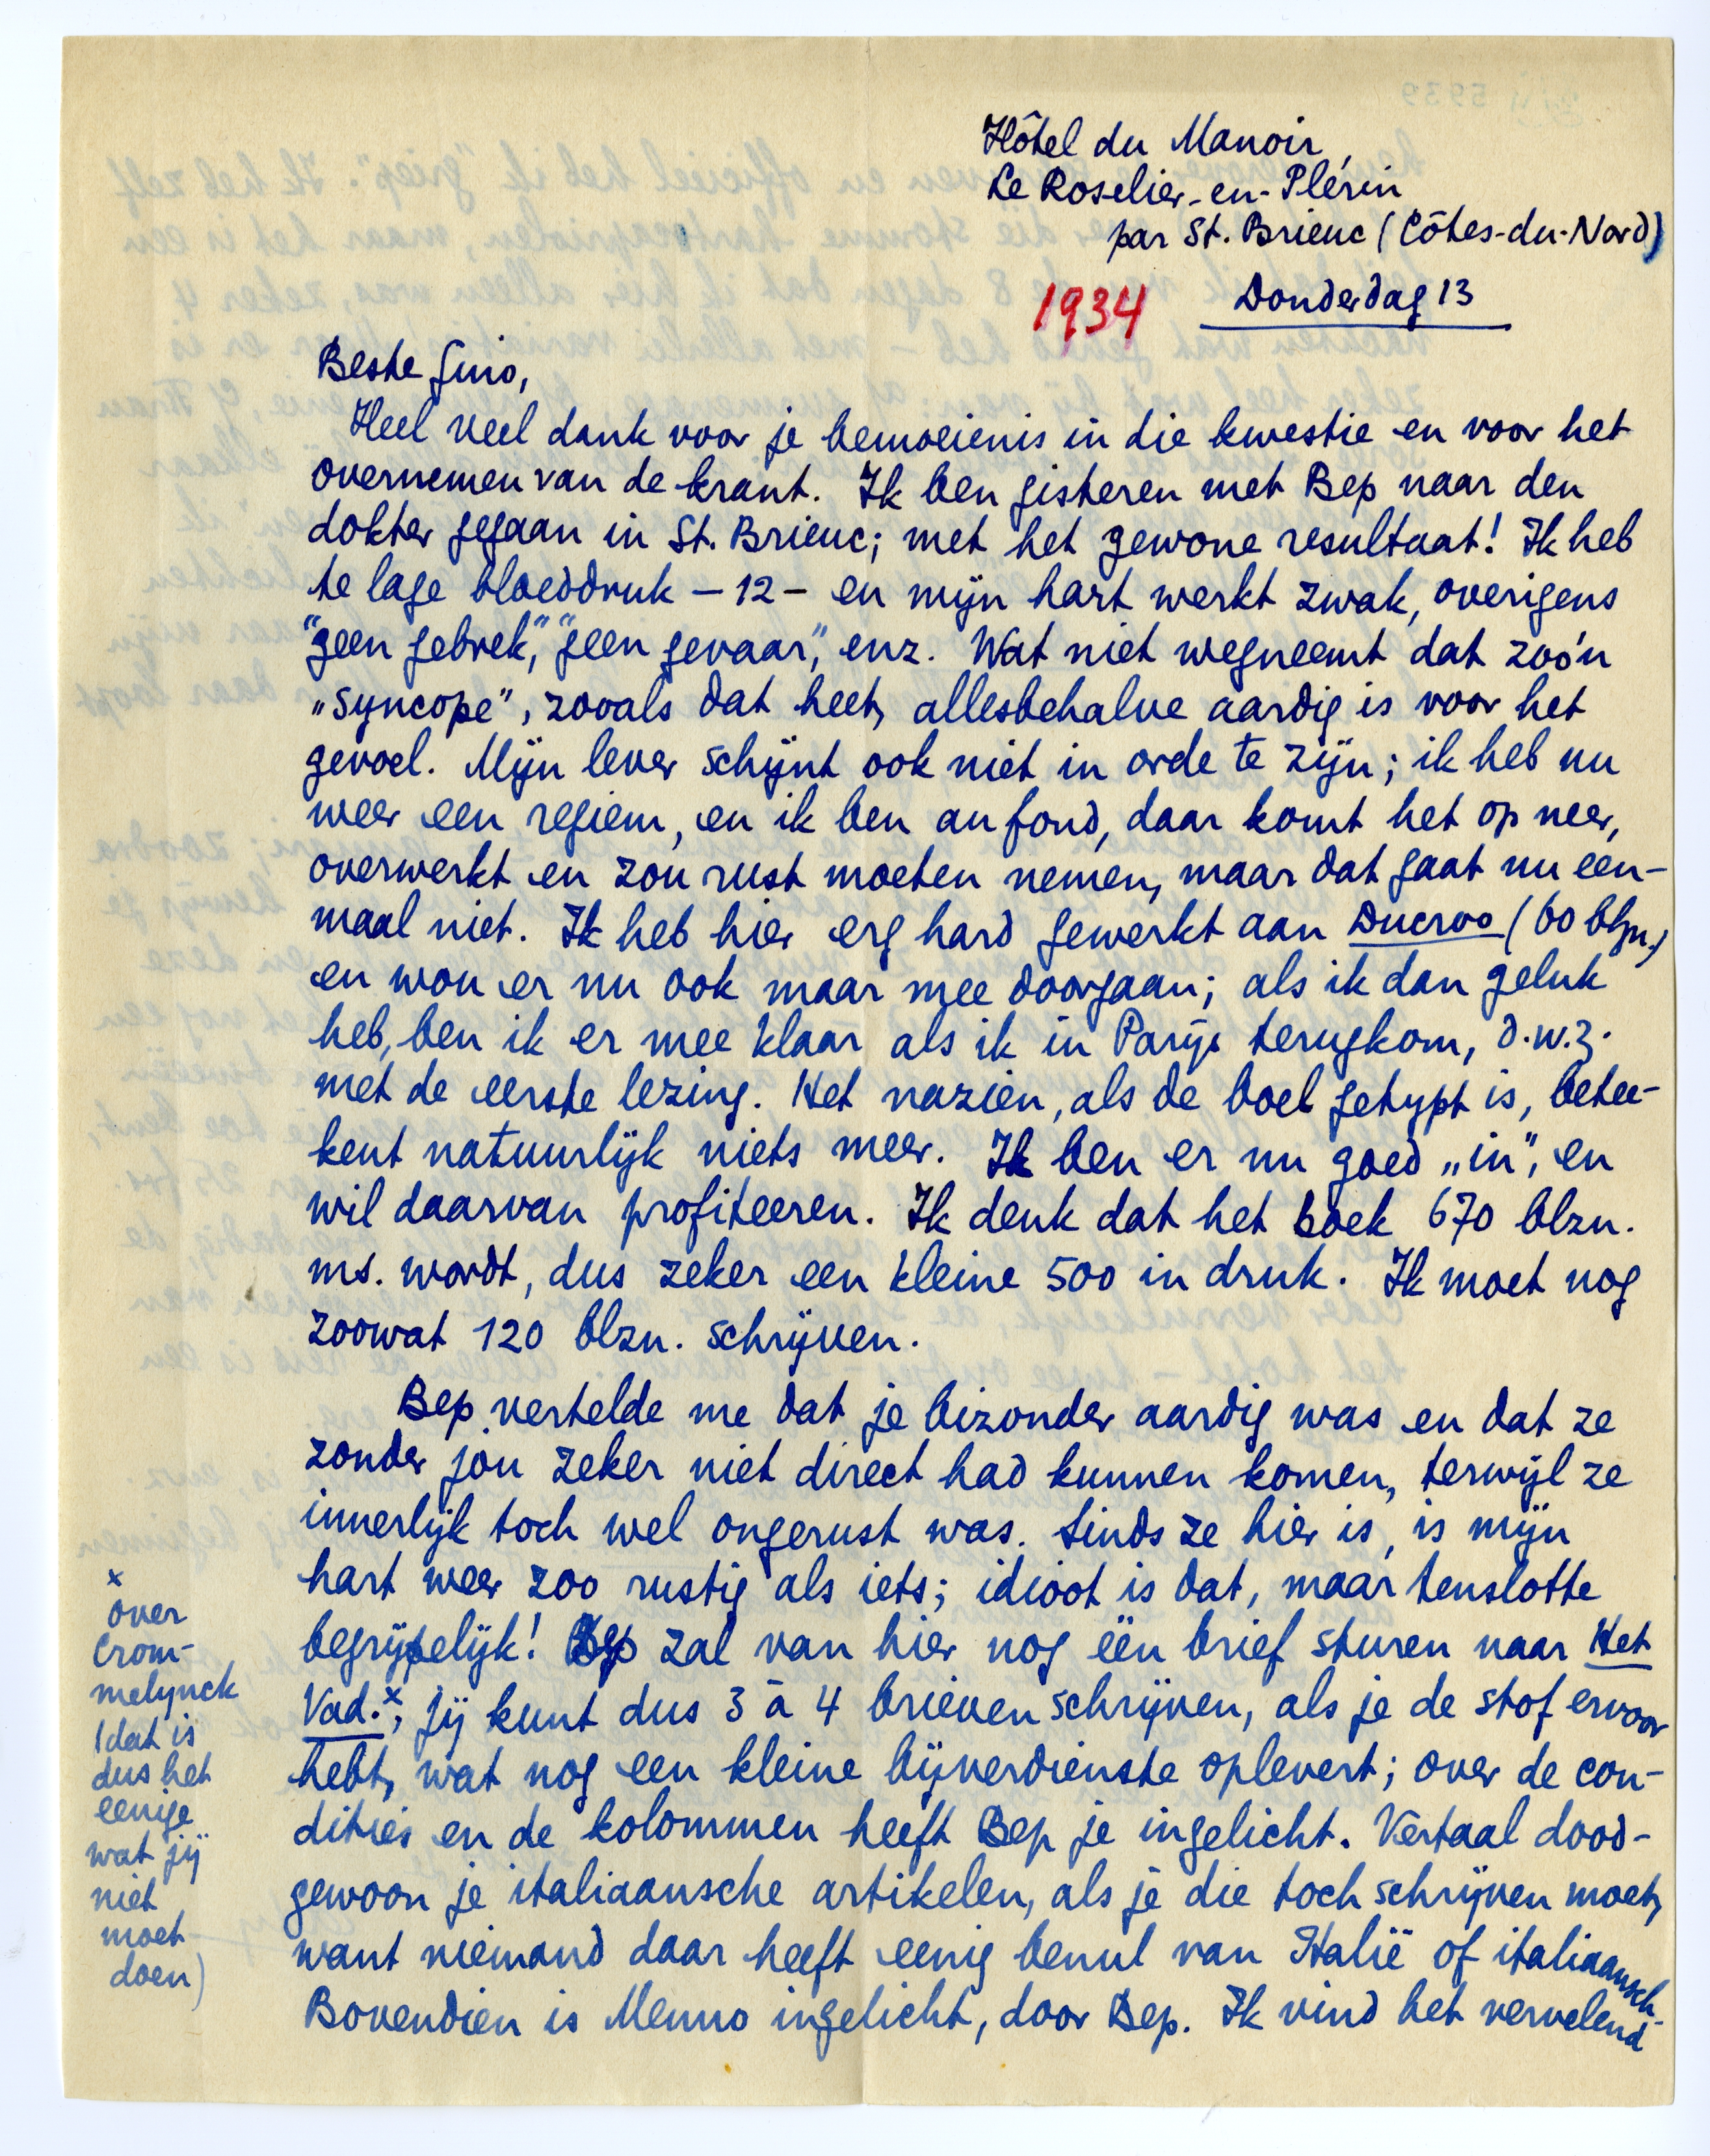 Hôtel du Manoir,
Le Roselier-en-Plérin
par St. Brieuc (Côtes-du-Nord)
1934 Donderdag 13
Beste Gino,
Heel veel dank voor je bemoeienis in die kwestie en voor het
overnemen van de krant. Ik ben gisteren met Bep naar den
dokter gegaan in St. Brieuc; met het gewone resultaat! Ik heb
te lage bloeddruk – 12 – en mijn hart werkt zwak, overigens
"geen gebrek", "geen gevaar", enz. Wat niet wegneemt dat zoo'n
„syncope", zooals dat heet, allesbehalve aardig is voor het
gevoel. Mijn lever schijnt ook niet in orde te zijn; ik heb nu
weer een regiem, en ik ben au fond, daar komt het op neer,
overwerkt en zou rust moeten nemen, maar dat gaat nu een-
maal niet. Ik heb hier erg hard gewerkt aan Ducroo (60 blzn.)
en wou er nu ook maar mee doorgaan; als ik dan geluk
heb, ben ik er mee klaar als ik in Parijs terugkom, d.w.z.
met de eerste lezing. Het nazien, als de boel getypt is, betee-
kent natuurlijk niets meer. Ik ben er nu goed „in", en
wil daarvan profiteeren. Ik denk dat het boek 670 blzn.
ms. wordt, dus zeker een kleine 500 in druk. Ik moet nog
zoowat 120 blzn. schrijven.
Bep vertelde me dat je bizonder aardig was en dat ze
zonder jóu zeker niet direct had kunnen komen, terwijl ze
innerlijk toch wel ongerust was. Sinds ze hier is, is mijn
hart weer zoo rustig als iets; idioot is dat, maar tenslotte
begrijpelijk! Bep zal van hier nog één brief sturen naar Het
Vad.x; jij kunt dus 3 à 4 brieven schrijven, als je de stof ervoor
hebt, wat nog een kleine bijverdienste oplevert; over de con-
dities en de kolommen heeft Bep je ingelicht. Vertaal dood-
gewoon je italiaansche artikelen, als je die toch schrijven moet,
want niemand daar heeft eenig benul van Italië of italiaansch.
Bovendien is Menno ingelicht, door Bep. Ik vind het vervelend
x
over
Crom-
melynck
(dat is
dus het
eenige
wat jij
niet
moet
doen)